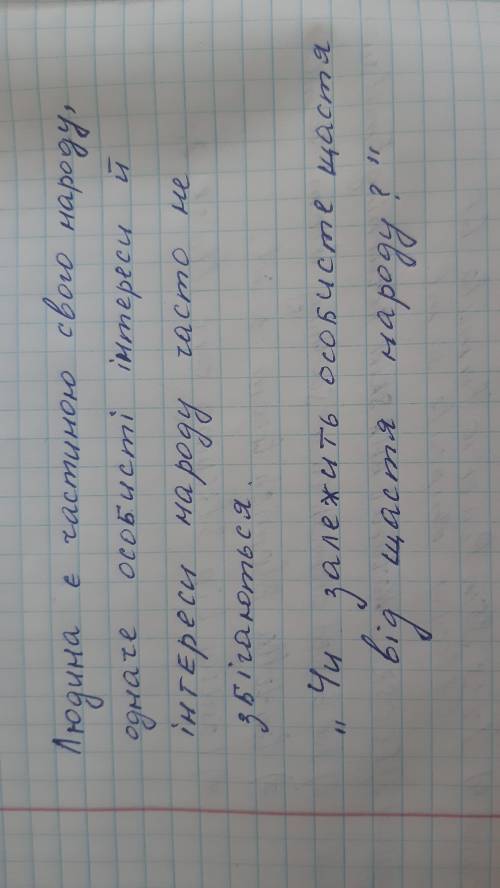 Людина є частиною свого народу,
одначе особисті інтереси й
інтереси народу часто не
збігаються.
„ Чи залежить особисте щастя
від щастя народу? "